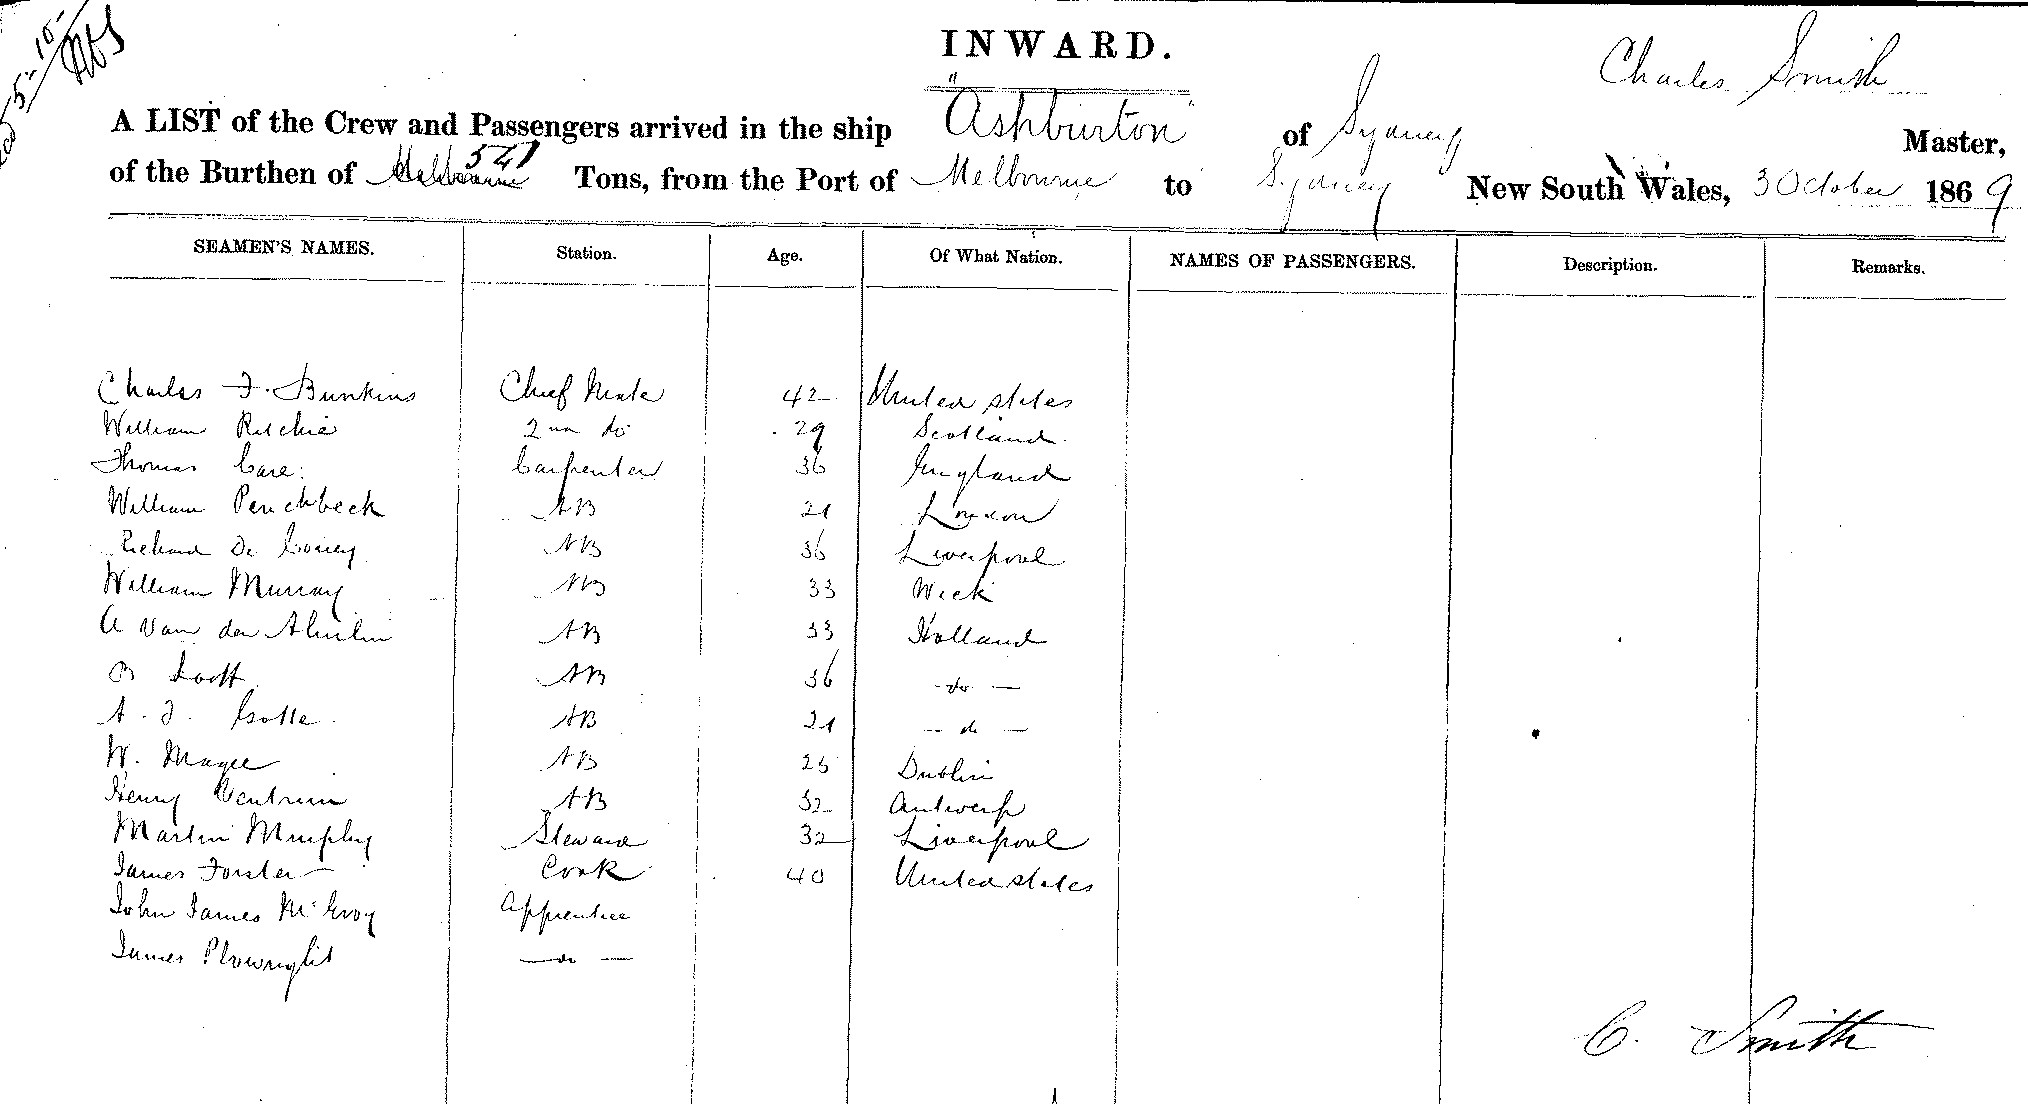 INWARD.
Charles Smith
A LIST of the Crew and Passengers arrived in the ship "Ashburton" of Sydney Master,
of the Burthen of 541 Tons, from the Port of Melbourne to Sydney New South Wales, 3 October 1869
SEAMEN'S NAMES. Station. Age. Of What Nation. NAMES OF PASSENGERS. Description. Remarks.
Charles F. Bunkins Chief Mate 42 United states
William Ritchie 2nd do 29 Scotland
Thomas Care. Carpenter 36 England
William Penchbeck AB 21 London
Richard De Coney AB 36 Liverpool
William Murray AB 33 Wick
A Van der AB 33 Holland
B AB 36 - do -
A. J. AB 21 - do -
W. Magee AB 25 Dublin
Henry Ventrum AB 32 Antwerp
Martin Murphy Steward 32 Liverpool
James Forster Cook 40 United states
John James McEvoy Apprentice
James Plowright - do -
C. Smith